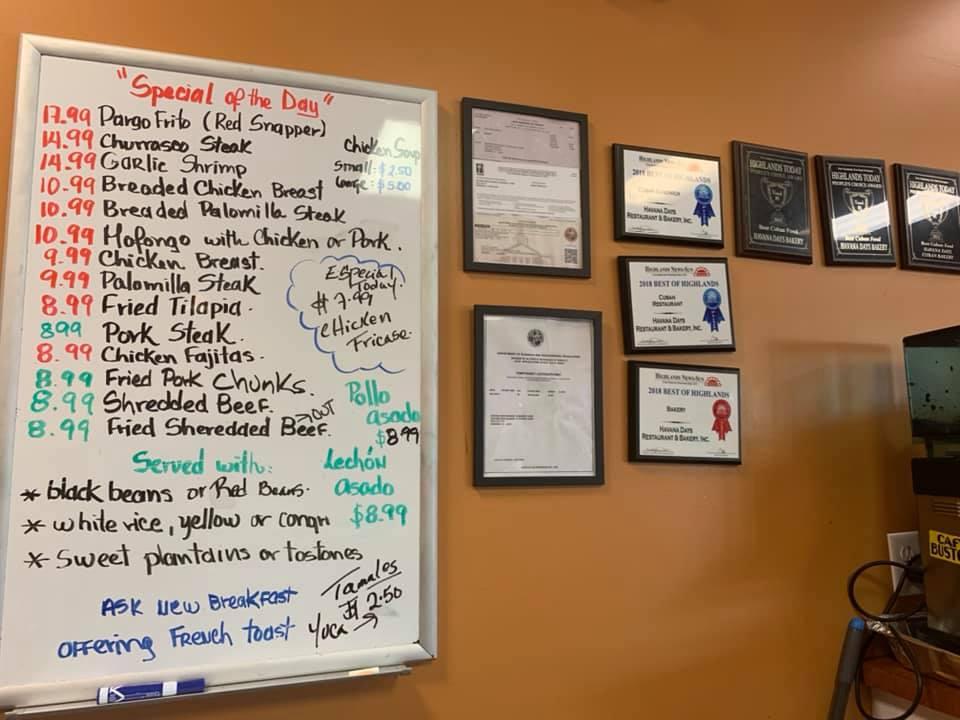 "Special of the Day"
17.99 Pargo Frito (Red Snapper)
14.99 Churrasco Steak
14.99 Garlic Shrimp
10.99 Breaded Chicken Breast
10.99 Breaded Palomilla Steak
10.99 Mofongo with Chicken or Pork.
9.99 Chicken Breast.
9.99 Palomilla Steak
8.99 Fried Tilapia.
899 Pork Steak.
8.99 Chicken Fajitas.
8.99 Fried Pork Chunks.
8.99 Shredded Beef.
8.99 Fried Sheredded Beef.
OUT
Chicken Soup
Small: $2.50
Large: $5.00
Especial
Today.
$7.99
Chicken
Fricase.
Pollo
asado
$8.99
Lechón
asado
$8.99
Served with:
* black beans or Red Beans.
* white rice, yellow or congri
* Sweet plantains or tostones
Ask New Breakfast
Offering French toast
Tamales
$2.50
Yuca
Highlands News-Sun
2018 Best of Highlands
Cuban Sandwich
Havana Days
Restaurant & Bakery, Inc.
Highlands News-Sun
2018 Best of Highlands
Cuban
Restaurant
Havana Days
Restaurant & Bakery, Inc.
Highlands News-Sun
2018 Best of Highlands
Bakery
Havana Days
Restaurant & Bakery, Inc.
Highlands Today
People's Choice Award
Best Cuban Food
Havana Days Bakery
Highlands Today
People's Choice Award
Best Cuban Food
Havana Days Bakery
Highlands Today
Best Cuban Food
Havana Days
Cuban Bakery
CAF
BUST